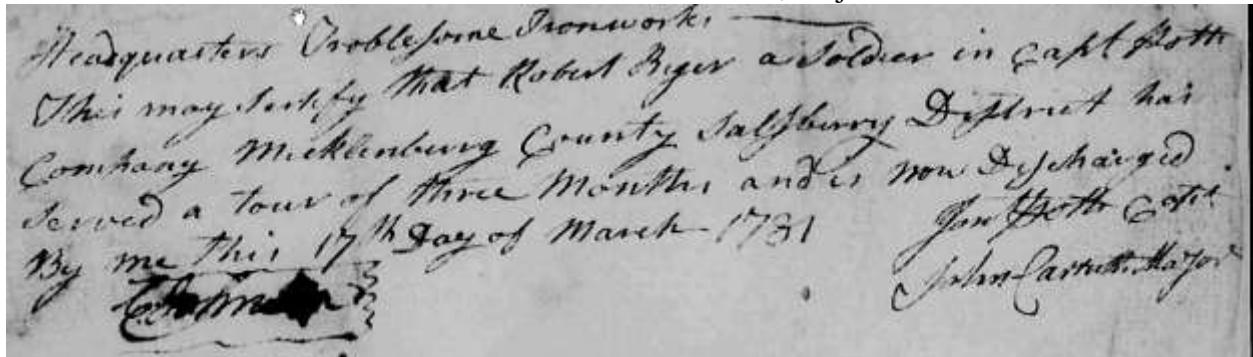 Headquarters Troblesome Ironworks
This may Sertify that Robert Ryer a Soldier in Capt
Company Mecklenburg County Salsberry District has
Served a tour of three Months and is now Discharged
By me this 17th Day of March 1781
Capt
John Carruth Major